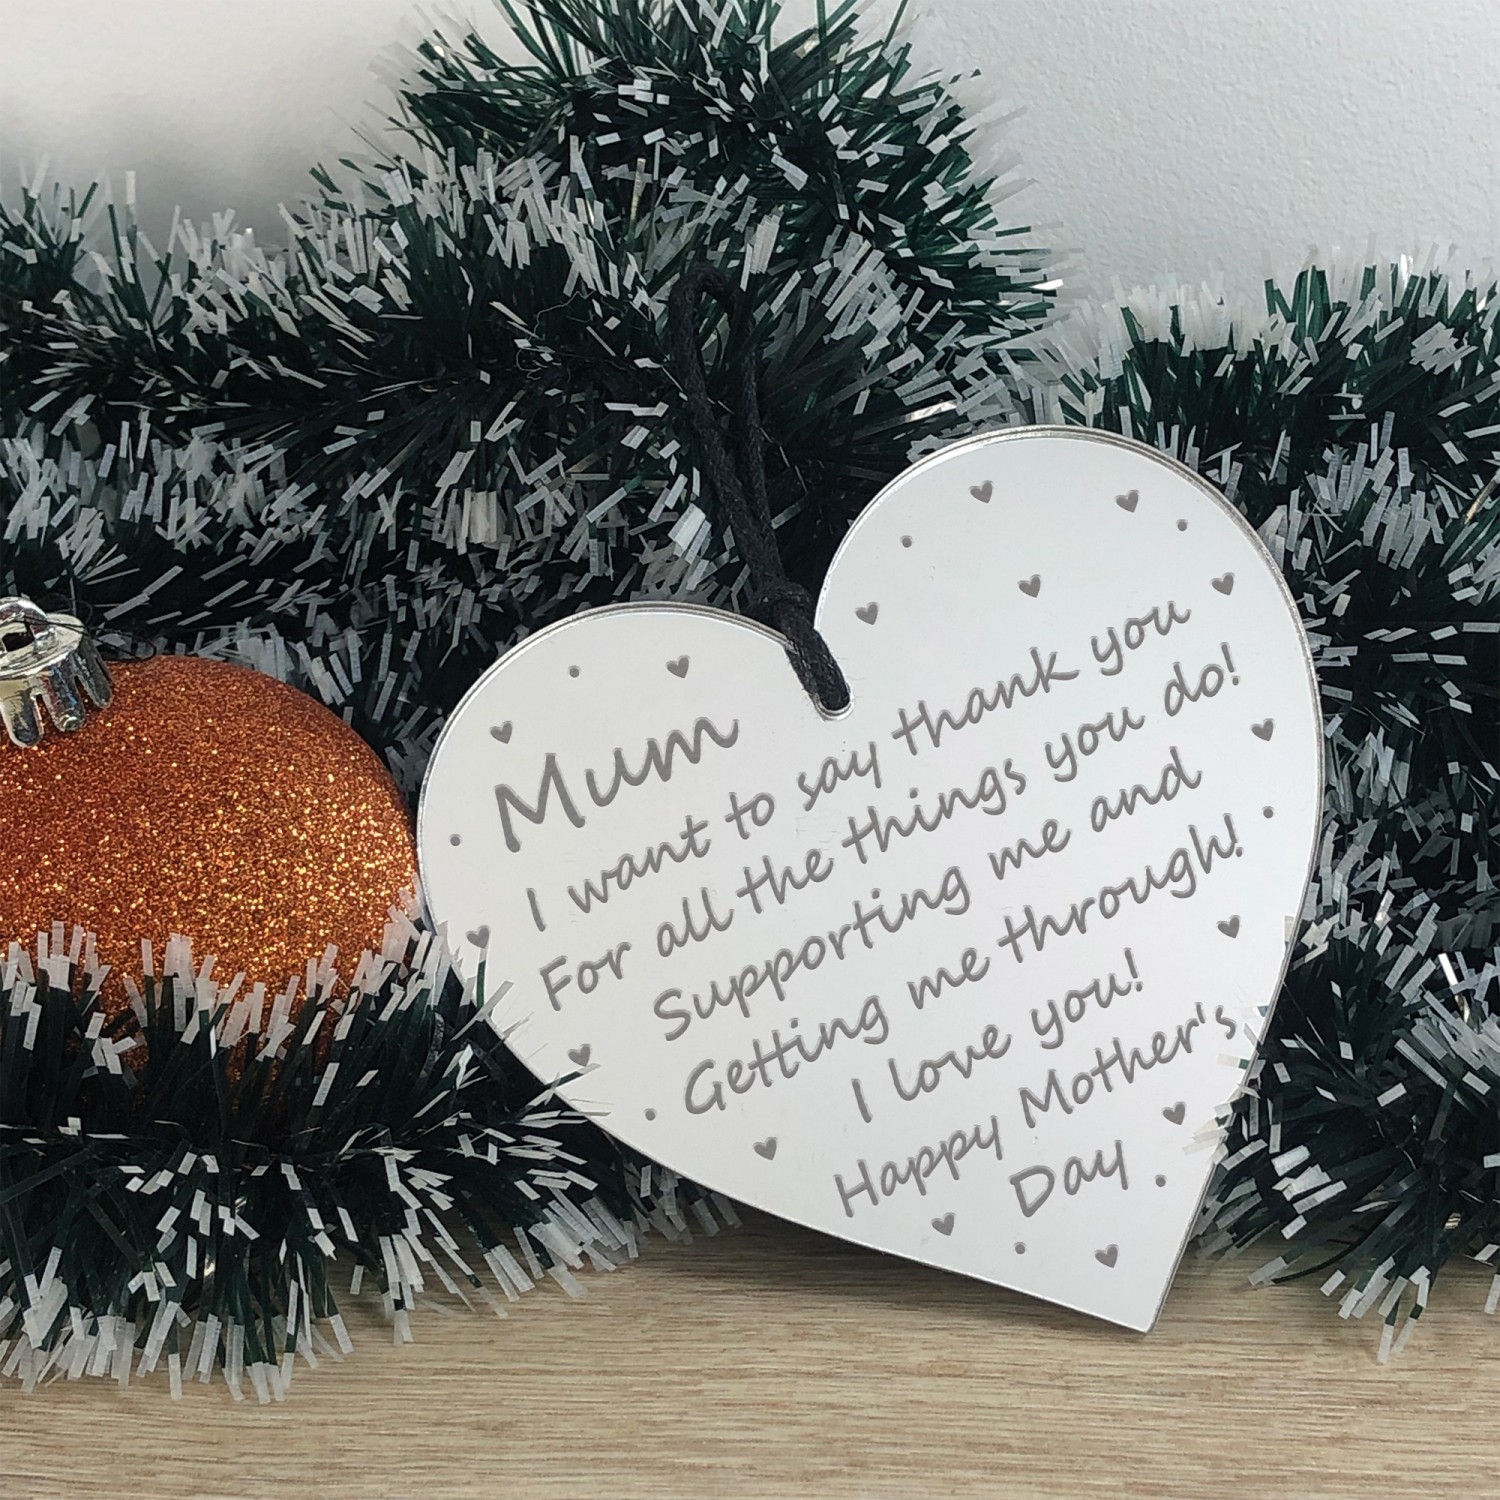 Mum
I want to say thank you
For all the things you do!
Supporting me and
Getting me through!
I love you!
Happy Mother's
Day